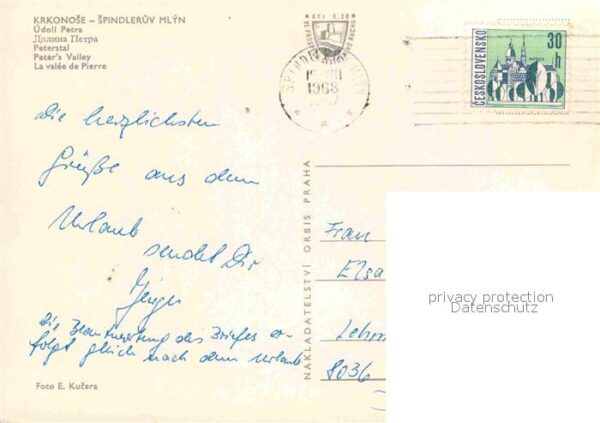 KRKONOŠE – ŠPINDLERŮV MLÝN
Údolí Petra
Долина Петра
Peterstal
Peter's Valley
La valée de Pierre
KčS 0,20
ŠPINDLERŮV MLÝN
1968
ČESKOSLOVENSKO
30 h
Die herzlichsten
Grüße aus dem
Urlaub
sendet Dir
Die Beantwortung des Briefes er-
folgt gleich nach dem Urlaub
Foto E. Kučera
NAKLADATELSTVÍ ORBIS PRAHA
Frau
Elsa
Lehm
8036
privacy protection
Datenschutz